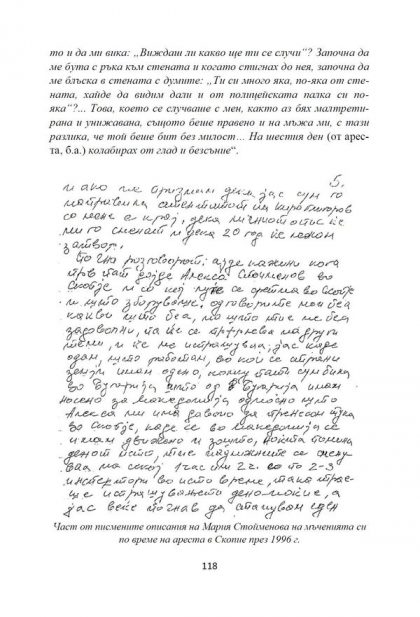 то и да ми вика: „Виждаш ли какво ще ти се случи"? Започна да
ме бута с ръка към стената и когато стигнах до нея, започна да
ме блъска в стената с думите: „Ти си много яка, по-яка от сте-
ната, хайде да видим дали и от полицейската палка си по-
яка"?... Това, което се случваше с мен, както аз бях малтрети-
рана и унижавана, същото беше правено и на мъжа ми, с тази
разлика, че той беше бит без милост... На шестия ден (от арес-
та, б.а.) колабирах от глад и безсъние“.
5.
и ако не признам дека јас сум го
направила атентатот на Киро Глигоров
со мене е крај, дека
ми го сменат и дека 20 год ќе лежам
затвор.
Почна разговорот: ајде кажи кога
прв пат дојде Алекса Стоименов во
Скопје и со кој се сретна во Скопје
и што зборуваше, одговорите мои беа
какви што беа, но што тие не беа
задоволни, па ќе се на други
теми, и ќе ме испрашува; јас каде
одам, што работам, во кои се страни
земји имам одено, колку пати сум била
во Бугарија што од Бугарија имам
носено за Македонија односно што
Алекса ми има давано да пренесам тука
во Скопје, каде се во Македонија се
имам движено и зошто,
денот исто, тие се
ваа на секој 1 час или 2 ч. со по 2-3
инспектори во исто време, така трае-
ше испрашувањето деноноќие, а
јас веќе почнав да паѓам еден
Част от писмените описания на Мария Стойменова на мъченията си
по време на ареста в Скопие през 1996 г.
118